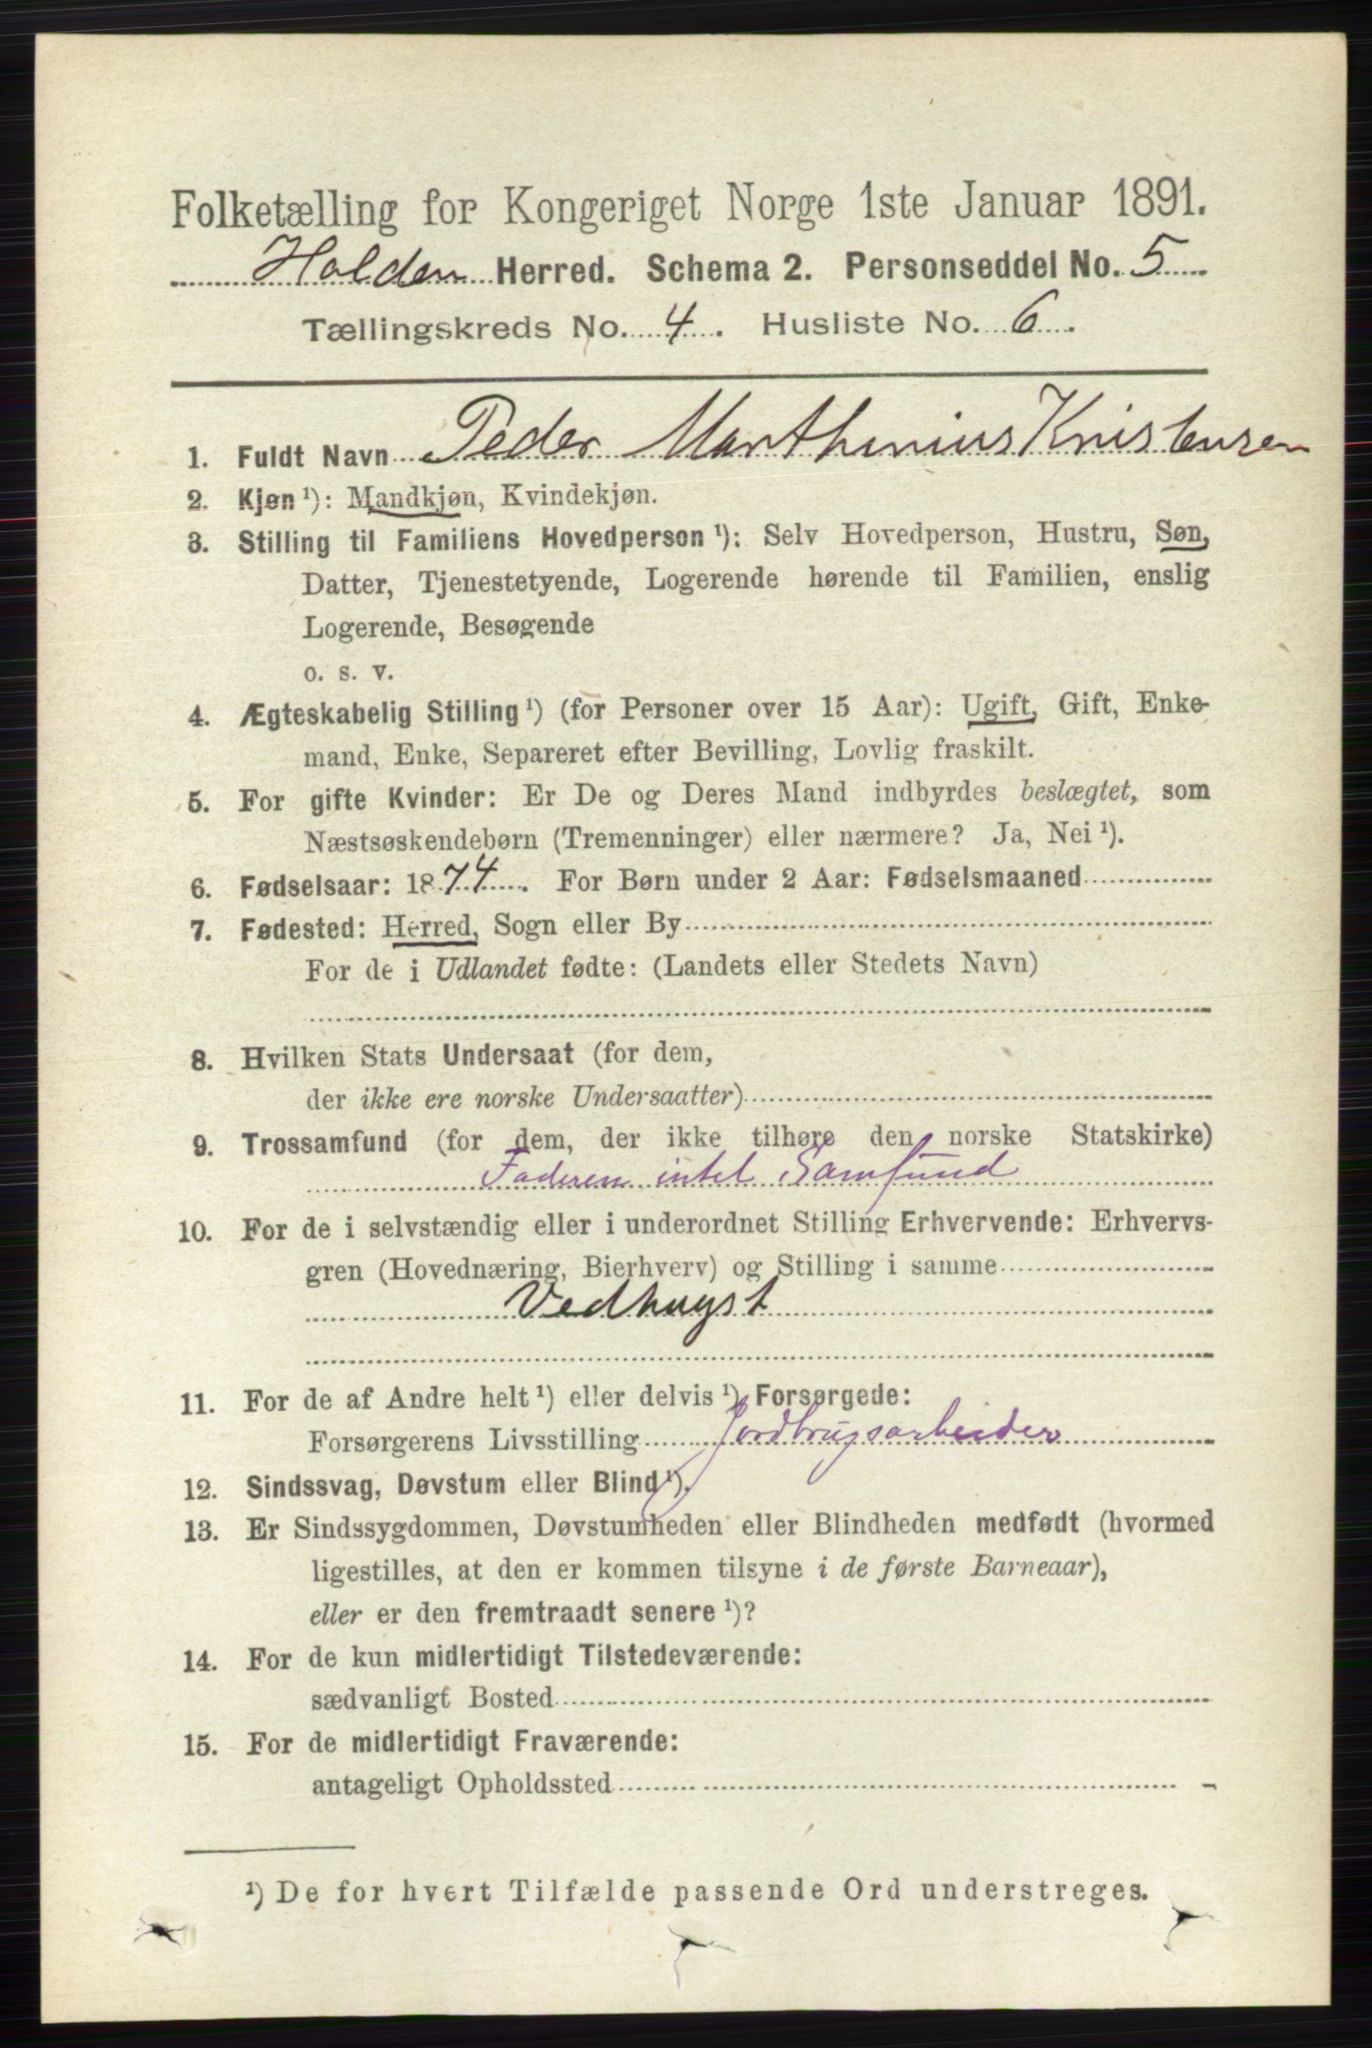 Folketælling for Kongeriget Norge 1ste Januar 1891.
Holden Herred. Schema 2. Personseddel No. 5
Tællingskreds No. 4. Husliste No. 6.
1. Fuldt Navn Peder Marthinius Kristensen
2. Kjøn ¹): Mandkjøn, Kvindekjøn.
3. Stilling til Familiens Hovedperson ¹): Selv Hovedperson, Hustru, Søn,
Datter, Tjenestetyende, Logerende hørende til Familien, enslig
Logerende, Besøgende
o. s. v.
4. Ægteskabelig Stilling ¹) (for Personer over 15 Aar): Ugift, Gift, Enke-
mand, Enke, Separeret efter Bevilling, Lovlig fraskilt.
5. For gifte Kvinder: Er De og Deres Mand indbyrdes beslægtet, som
Næstsøskendebørn (Tremenninger) eller nærmere? Ja, Nei ¹).
6. Fødselsaar: 1874. For Børn under 2 Aar: Fødselsmaaned
7. Fødested: Herred, Sogn eller By
For de i Udlandet fødte: (Landets eller Stedets Navn)
8. Hvilken Stats Undersaat (for dem,
der ikke ere norske Undersaatter)
9. Trossamfund (for dem, der ikke tilhøre den norske Statskirke)
Faderen intet Samfund
10. For de i selvstændig eller i underordnet Stilling Erhvervende: Erhvervs-
gren (Hovednæring, Bierhverv) og Stilling i samme
Vedhugst
11. For de af Andre helt ¹) eller delvis ¹) Forsørgede:
Forsørgerens Livsstilling Jordbrugsarbeider
12. Sindssvag, Døvstum eller Blind ¹).
13. Er Sindssygdommen, Døvstumheden eller Blindheden medfødt (hvormed
ligestilles, at den er kommen tilsyne i de første Barneaar),
eller er den fremtraadt senere ¹)?
14. For de kun midlertidigt Tilstedeværende:
sædvanligt Bosted
15. For de midlertidigt Fraværende:
antageligt Opholdssted
¹) De for hvert Tilfælde passende Ord understreges.